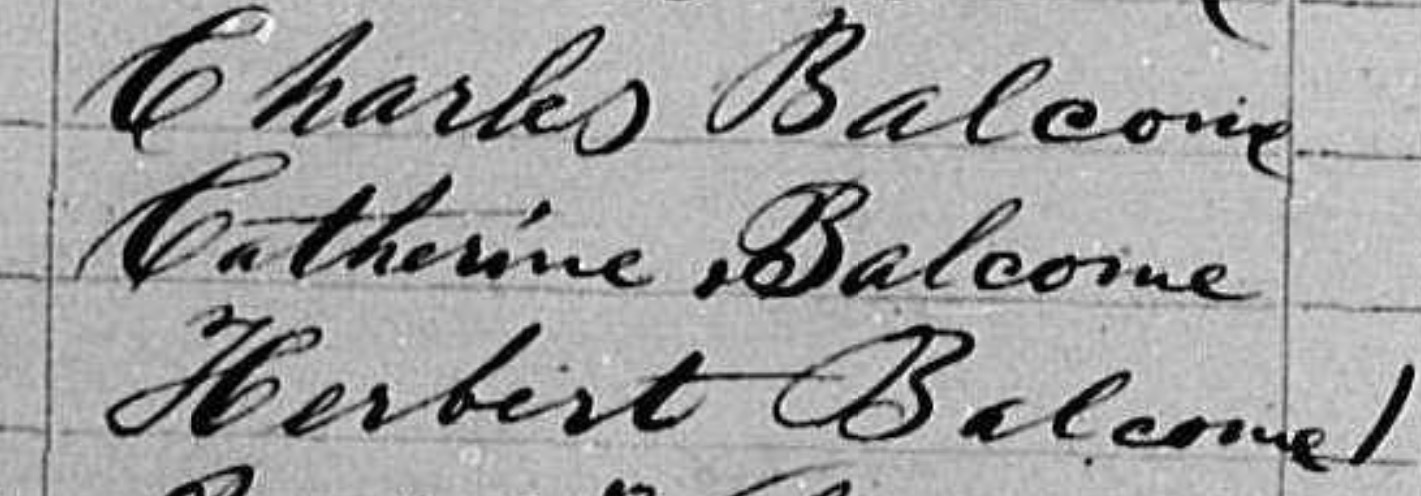 Charles Balcome
Catherine Balcome
Herbert Balcome